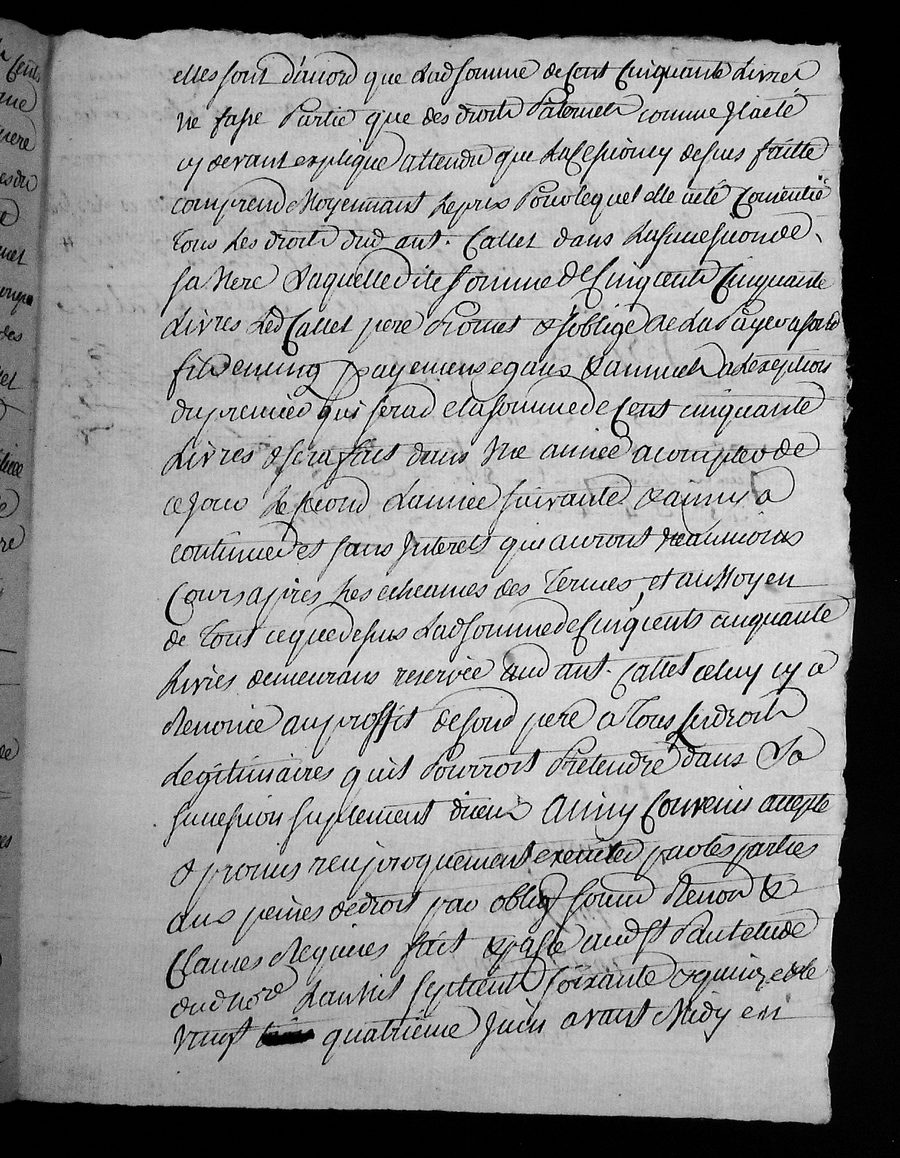 elles sont d'acord que Lad somme de Cent Cinquante Livres
ne fasse Partie que des droits Paternels comme Il a eté
cy devant expliqué attendu que La Cession cy dessus faitte
comprend Moyennant Le prix Pour lequel elle a eté Consentie
Tous Les droits dud ant. Callet dans La succession de
sa Mere Laquelle dite somme de Cinq cents Cinquante
Livres Led Callet pere Promet & s'oblige de La Payer a sond
fils en cinq payemens egaux & annuels a Lexeption
du premier qui sera de la somme de Cent cinquante
Livres & sera fait dans Une année a compter de
ce jour Le second L'année suivante & ainsy a
continuer et sans Interets qui auront neanmoins
Cours apres Les echeances des Termes, et au Moyen
de Tout ce que dessus Lad somme de Cinq cents cinquante
Livres demeurans reservée aud ant. Callet celuy cy a
Renoncé au proffit de sond pere a Tous les droits
Legitimaires quil Pourroit Pretendre dans Sa
succession suplement diceux Ainsy Convenu accepté
& promis reciproquement executer par les parties
aux peines de droit par oblig soumn Renon &
Clauses Requises fait & passé aud St Paul etude
dud no.re L'an mil sept cent soixante & quinze & le
vingt quatrième Juin avant Midy en